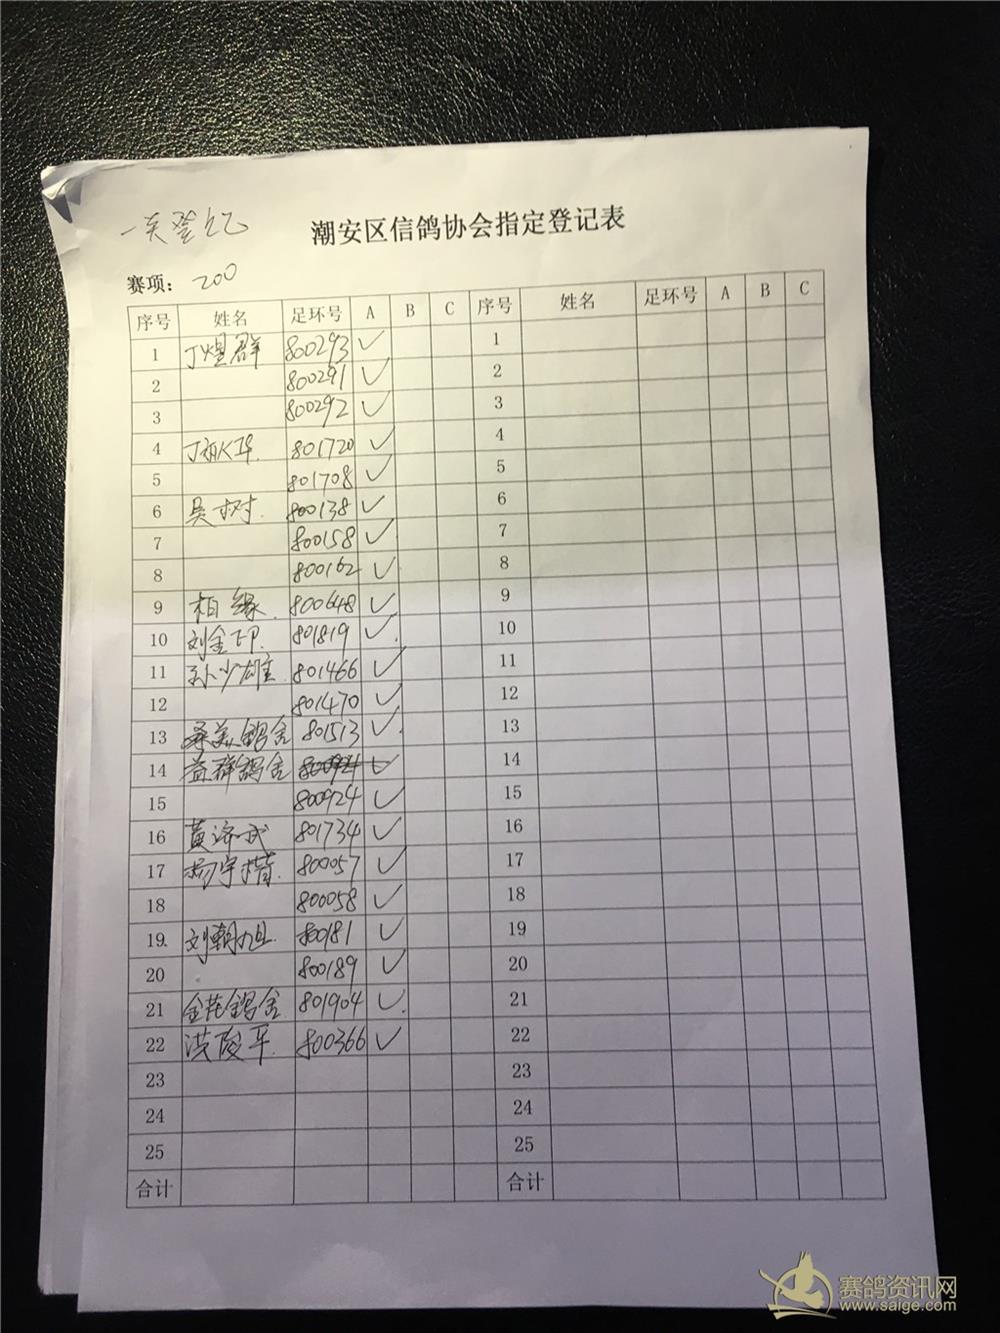 潮安区信鸽协会指定登记表
赛项： 200
序号 姓名 足环号 A B C 序号 姓名 足环号 A B C
1 丁煌群 800293 ✓ 1
2 800291 ✓ 2
3 800292 ✓ 3
4 801720 ✓ 4
5 801708 ✓ 5
6 吴树 800138 ✓ 6
7 800158 ✓ 7
8 800162 ✓ 8
9 相缘 800648 ✓ 9
10 刘金印 801819 ✓ 10
11 孙少雄 801466 ✓ 11
12 801470 ✓ 12
13 鸽舍 801513 ✓ 13
14 益群鸽舍 ✓ 14
15 800924 ✓ 15
16 黄济武 801734 ✓ 16
17 杨宇楷 800057 ✓ 17
18 800058 ✓ 18
19 刘朝旭 800181 ✓ 19
20 800189 ✓ 20
21 金花鸽舍 801904 ✓ 21
22 洪陵平 800366 ✓ 22
23 23
24 24
25 25
合计 合计
赛鸽资讯网
www.saige.com